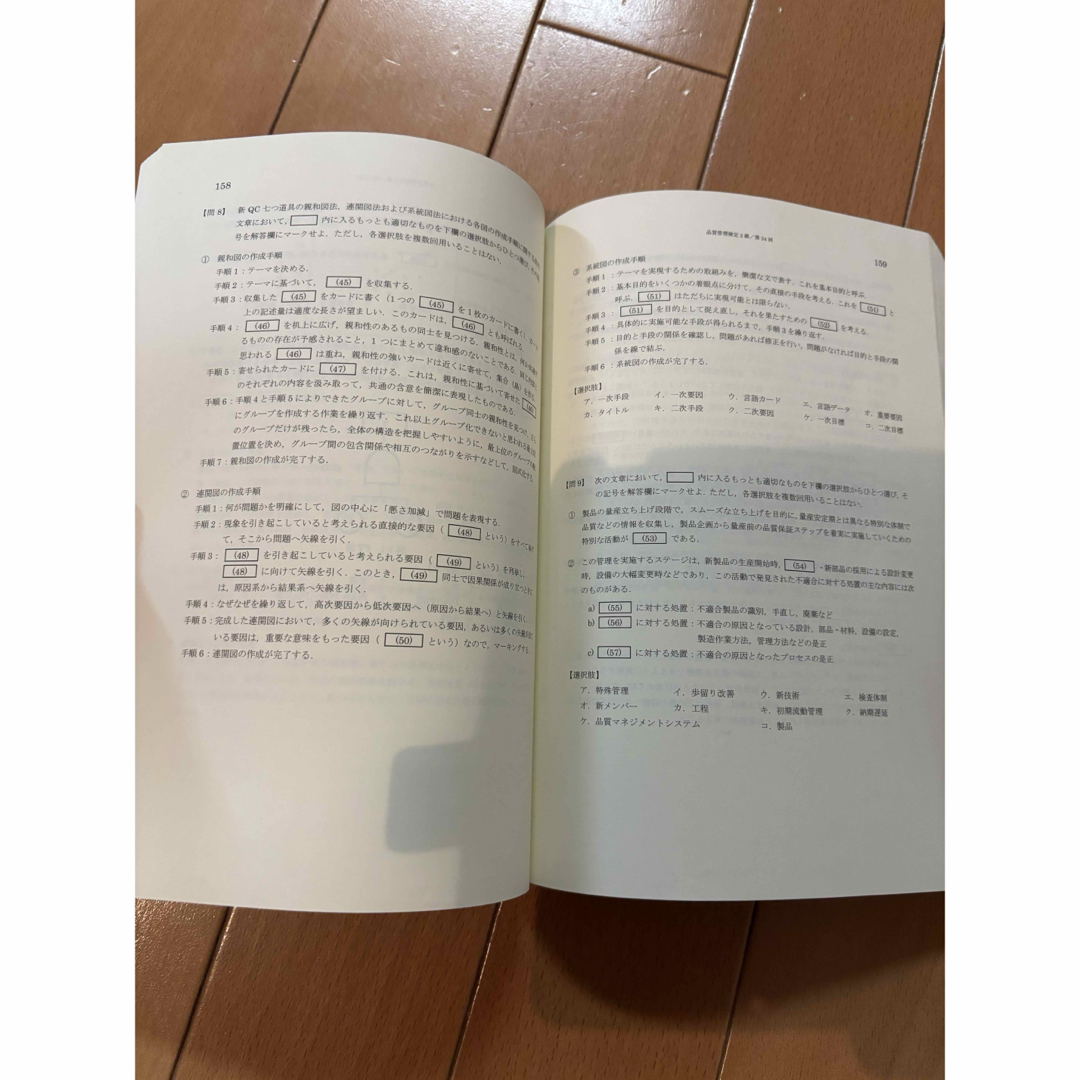 158
【問8】 新QC七つ道具の親和図法，連関図法および系統図法における各図の作成手順に関する
文章において，□内に入るもっとも適切なものを下欄の選択肢からひとつ選び，その
号を解答欄にマークせよ．ただし，各選択肢を複数回用いることはない．
① 親和図の作成手順
手順1：テーマを決める．
手順2：テーマに基づいて，(45)を収集する．
手順3：収集した(45)をカードに書く（1つの(45)を1枚のカードに書く）．
上の記述量は適度な長さが望ましい．このカードは，(46)とも呼ばれる．
手順4：(46)を机上に広げ，親和性のあるもの同士を見つける．親和性とは，
るものの存在が予感されること，1つにまとめて違和感のないことである．同じ
思われる(46)は重ね，親和性の強いカードは近くに寄せて，集合（島）を作る．
手順5：寄せられたカードに(47)を付ける．これは，親和性に基づいて寄せた(46)
のそれぞれの内容を汲み取って，共通の含意を簡潔に表現したものである．
手順6：手順4と手順5によりできたグループに対して，グループ同士の親和性を見つけ，
にグループを作成する作業を繰り返す．これ以上グループ化できないと思われる
のグループだけが残ったら，全体の構造を把握しやすいように，最上位のグループの
置位置を決め，グループ間の包含関係や相互のつながりを示すなどして，図式化する．
手順7：親和図の作成が完了する．
② 連関図の作成手順
手順1：何が問題かを明確にして，図の中心に「悪さ加減」で問題を表現する．
手順2：現象を引き起こしていると考えられる直接的な要因（(48)という）をすべて
て，そこから問題へ矢線を引く．
手順3：(48)を引き起こしていると考えられる要因（(49)という）を列挙し，
(48)に向けて矢線を引く．このとき，(49)同士で因果関係が成り立つときに
は，原因系から結果系へ矢線を引く．
手順4：なぜなぜを繰り返して，高次要因から低次要因へ（原因から結果へ）と矢線を引く．
手順5：完成した連関図において，多くの矢線が向けられている要因，あるいは多くの矢線が
いる要因は，重要な意味をもった要因（(50)という）なので，マーキングする．
手順6：連関図の作成が完了する．
品質管理検定2級／第34回
159
③ 系統図の作成手順
手順1：テーマを実現するための取組みを，簡潔な文で表す．これを基本目的と呼ぶ．
手順2：基本目的をいくつかの着眼点に分けて，その直接の手段を考える．これを(51)と
呼ぶ．(51)はただちに実現可能とは限らない．
手順3：(51)を目的として捉え直し，それを果たすための(52)を考える．
手順4：具体的に実施可能な手段が得られるまで，手順3を繰り返す．
手順5：目的と手段の関係を確認し，問題があれば修正を行い，問題がなければ目的と手段の関
係を線で結ぶ．
手順6：系統図の作成が完了する．
【選択肢】
ア．一次手段 イ．一次要因 ウ．言語カード エ．言語データ オ．重要要因
カ．タイトル キ．二次手段 ク．二次要因 ケ．一次目標 コ．二次目標
【問9】 次の文章において，□内に入るもっとも適切なものを下欄の選択肢からひとつ選び，そ
の記号を解答欄にマークせよ．ただし，各選択肢を複数回用いることはない．
① 製品の量産立ち上げ段階で，スムーズな立ち上げを目的に，量産安定期とは異なる特別な体制で
品質などの情報を収集し，製品企画から量産前の品質保証ステップを着実に実施していくための
特別な活動が(53)である．
② この管理を実施するステージは，新製品の生産開始時，(54)・新部品の採用による設計変更
時，設備の大幅変更時などであり，この活動で発見された不適合に対する処置の主な内容には次
のものがある．
a) (55)に対する処置：不適合製品の識別，手直し，廃棄など
b) (56)に対する処置：不適合の原因となっている設計，部品・材料，設備の設定，
製造作業方法，管理方法などの是正
c) (57)に対する処置：不適合の原因となったプロセスの是正
【選択肢】
ア．特殊管理 イ．歩留り改善 ウ．新技術 エ．検査体制
オ．新メンバー カ．工程 キ．初期流動管理 ク．納期遅延
ケ．品質マネジメントシステム コ．製品